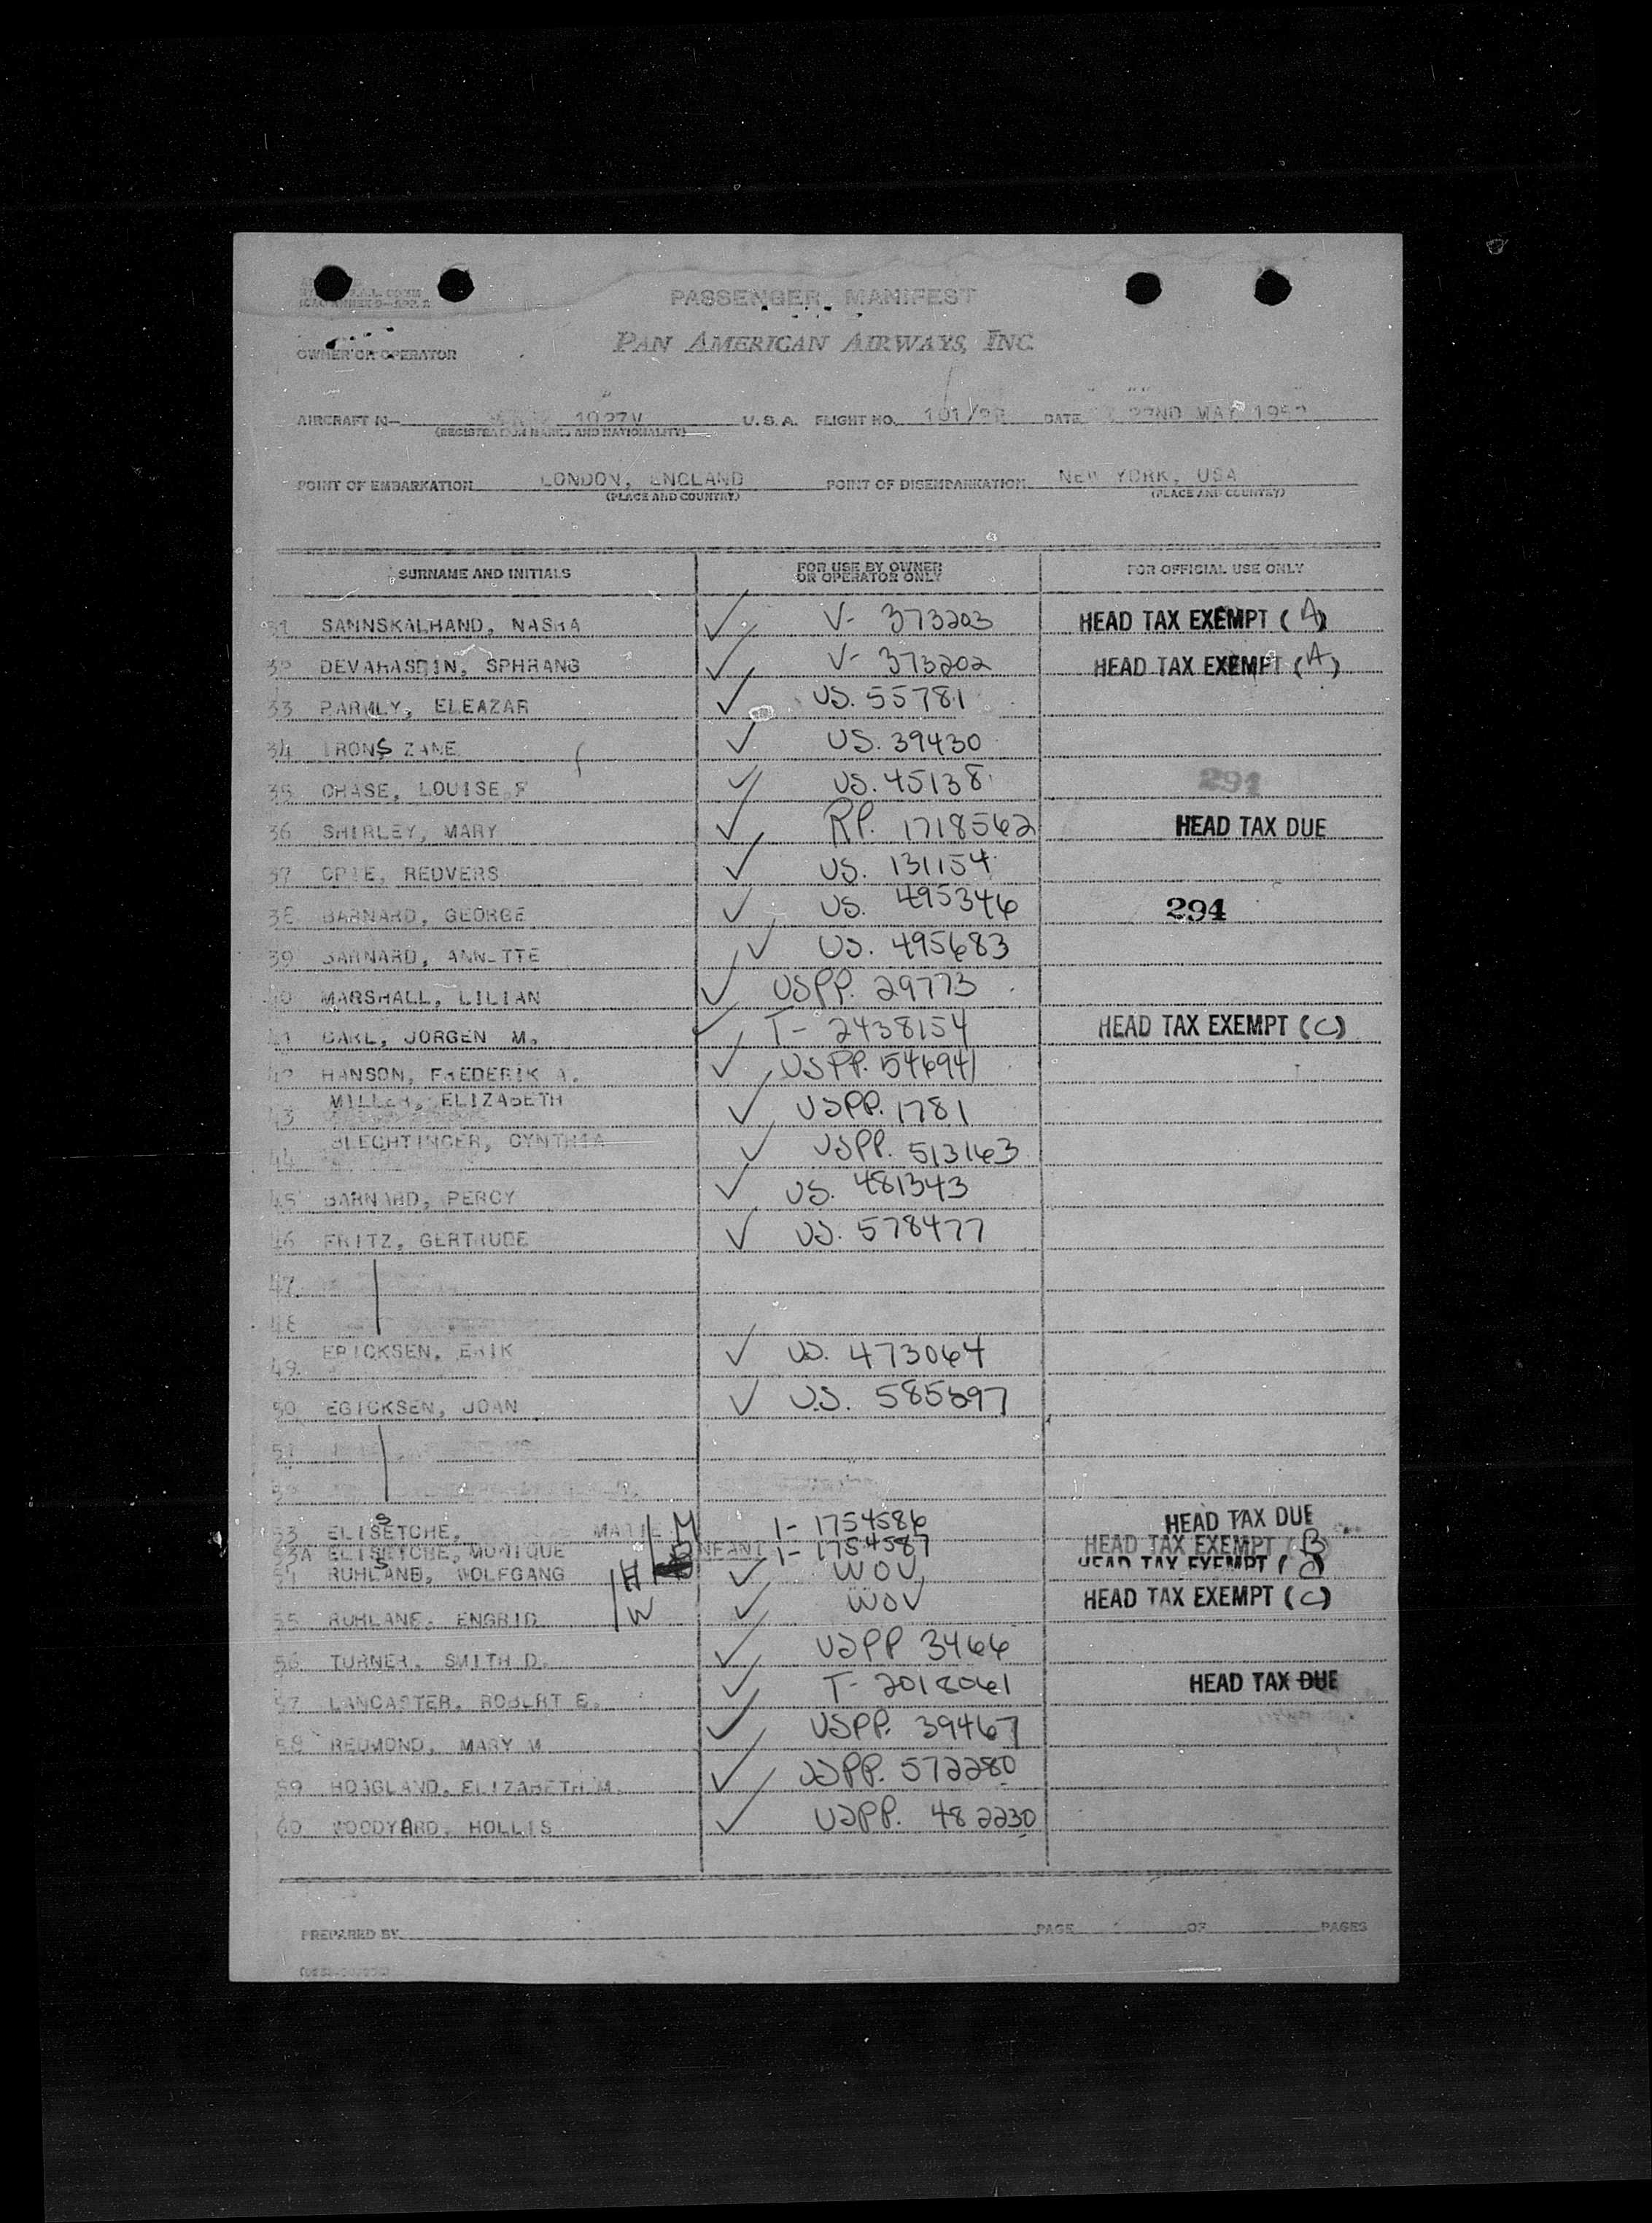 PASSENGER MANIFEST
PAN AMERICAN AIRWAYS, INC.
OWNER OR OPERATOR
AIRCRAFT N- 1027V U.S.A. FLIGHT NO. 101/22 DATE 22ND MAY 1952
(REGISTRATION MARKS AND NATIONALITY)
POINT OF EMBARKATION LONDON, ENGLAND POINT OF DISEMBARKATION NEW YORK, USA
(PLACE AND COUNTRY) (PLACE AND COUNTRY)
SURNAME AND INITIALS FOR USE BY OWNER OR OPERATOR ONLY FOR OFFICIAL USE ONLY
31 SANNSKALHAND, NASHA ✓ V- 373203 HEAD TAX EXEMPT (A)
32 DEVAHASDIN, SPHRANG ✓ V- 373202 HEAD TAX EXEMPT (A)
33 PARMLY, ELEAZAR ✓ US. 55781
34 IRONS ZANE ✓ US. 39430
35 CHASE, LOUISE F ✓ US. 45138 294
36 SHIRLEY, MARY ✓ RP. 1718562 HEAD TAX DUE
37 CRIE, REDVERS ✓ US. 131154
38 BARNARD, GEORGE ✓ US. 495346 294
39 BARNARD, ANNETTE ✓ US. 495683
40 MARSHALL, LILIAN ✓ USPP. 29773
41 CARL, JORGEN M. ✓ T- 2438154 HEAD TAX EXEMPT (C)
42 HANSON, FREDERIK A. ✓ USPP. 546941
43 MILLER, ELIZABETH ✓ USPP. 1781
44 BLECHTINGER, CYNTHIA ✓ USPP. 513163
45 BARNARD, PERCY ✓ US. 481343
46 FRITZ, GERTRUDE ✓ US. 578477
47
48
49. ERICKSEN, ERIK ✓ US. 473064
50 EGICKSEN, JOAN ✓ U.S. 585897
51
52
53 ELISETCHE, MARIE M I- 1754586 HEAD TAX DUE
53A ELISETCHE, MONIQUE INFANT I- 1754587 HEAD TAX EXEMPT (B)
54 RUHLAND, WOLFGANG H ✓ WOV HEAD TAX EXEMPT (C)
55 RUHLANE, ENGRID W ✓ WOV HEAD TAX EXEMPT (C)
56 TURNER, SMITH D. ✓ USPP 3466
57 LANCASTER, ROBERT E. ✓ T- 2018061 HEAD TAX DUE
58 REDMOND, MARY M ✓ USPP. 39467
59 HOAGLAND, ELIZABETH M. ✓ USPP. 572280
60 WOODYARD, HOLLIS ✓ USPP. 482230
PREPARED BY PAGE OF PAGES